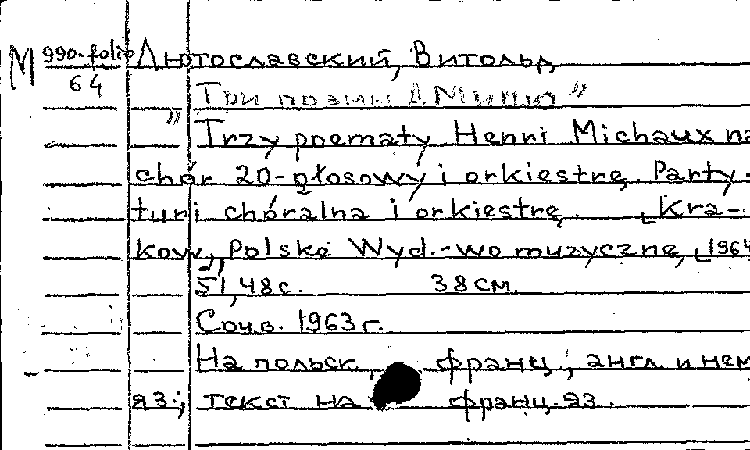 М 990-folio Лютославский, Витольд
64 Три поэмы А. Мишо"
"Trzy poematy Henri Michaux na
chór 20-głosowy i orkiestrę. Party-
turi chóralna i orkiestrę. [Kra-
ków], Polske Wyd.-wo muzyczne, [1964
51, 48 с. 38 см.
Соч. в. 1963 г.
На польск., франц., англ. и нем
яз.; текст на франц. яз.